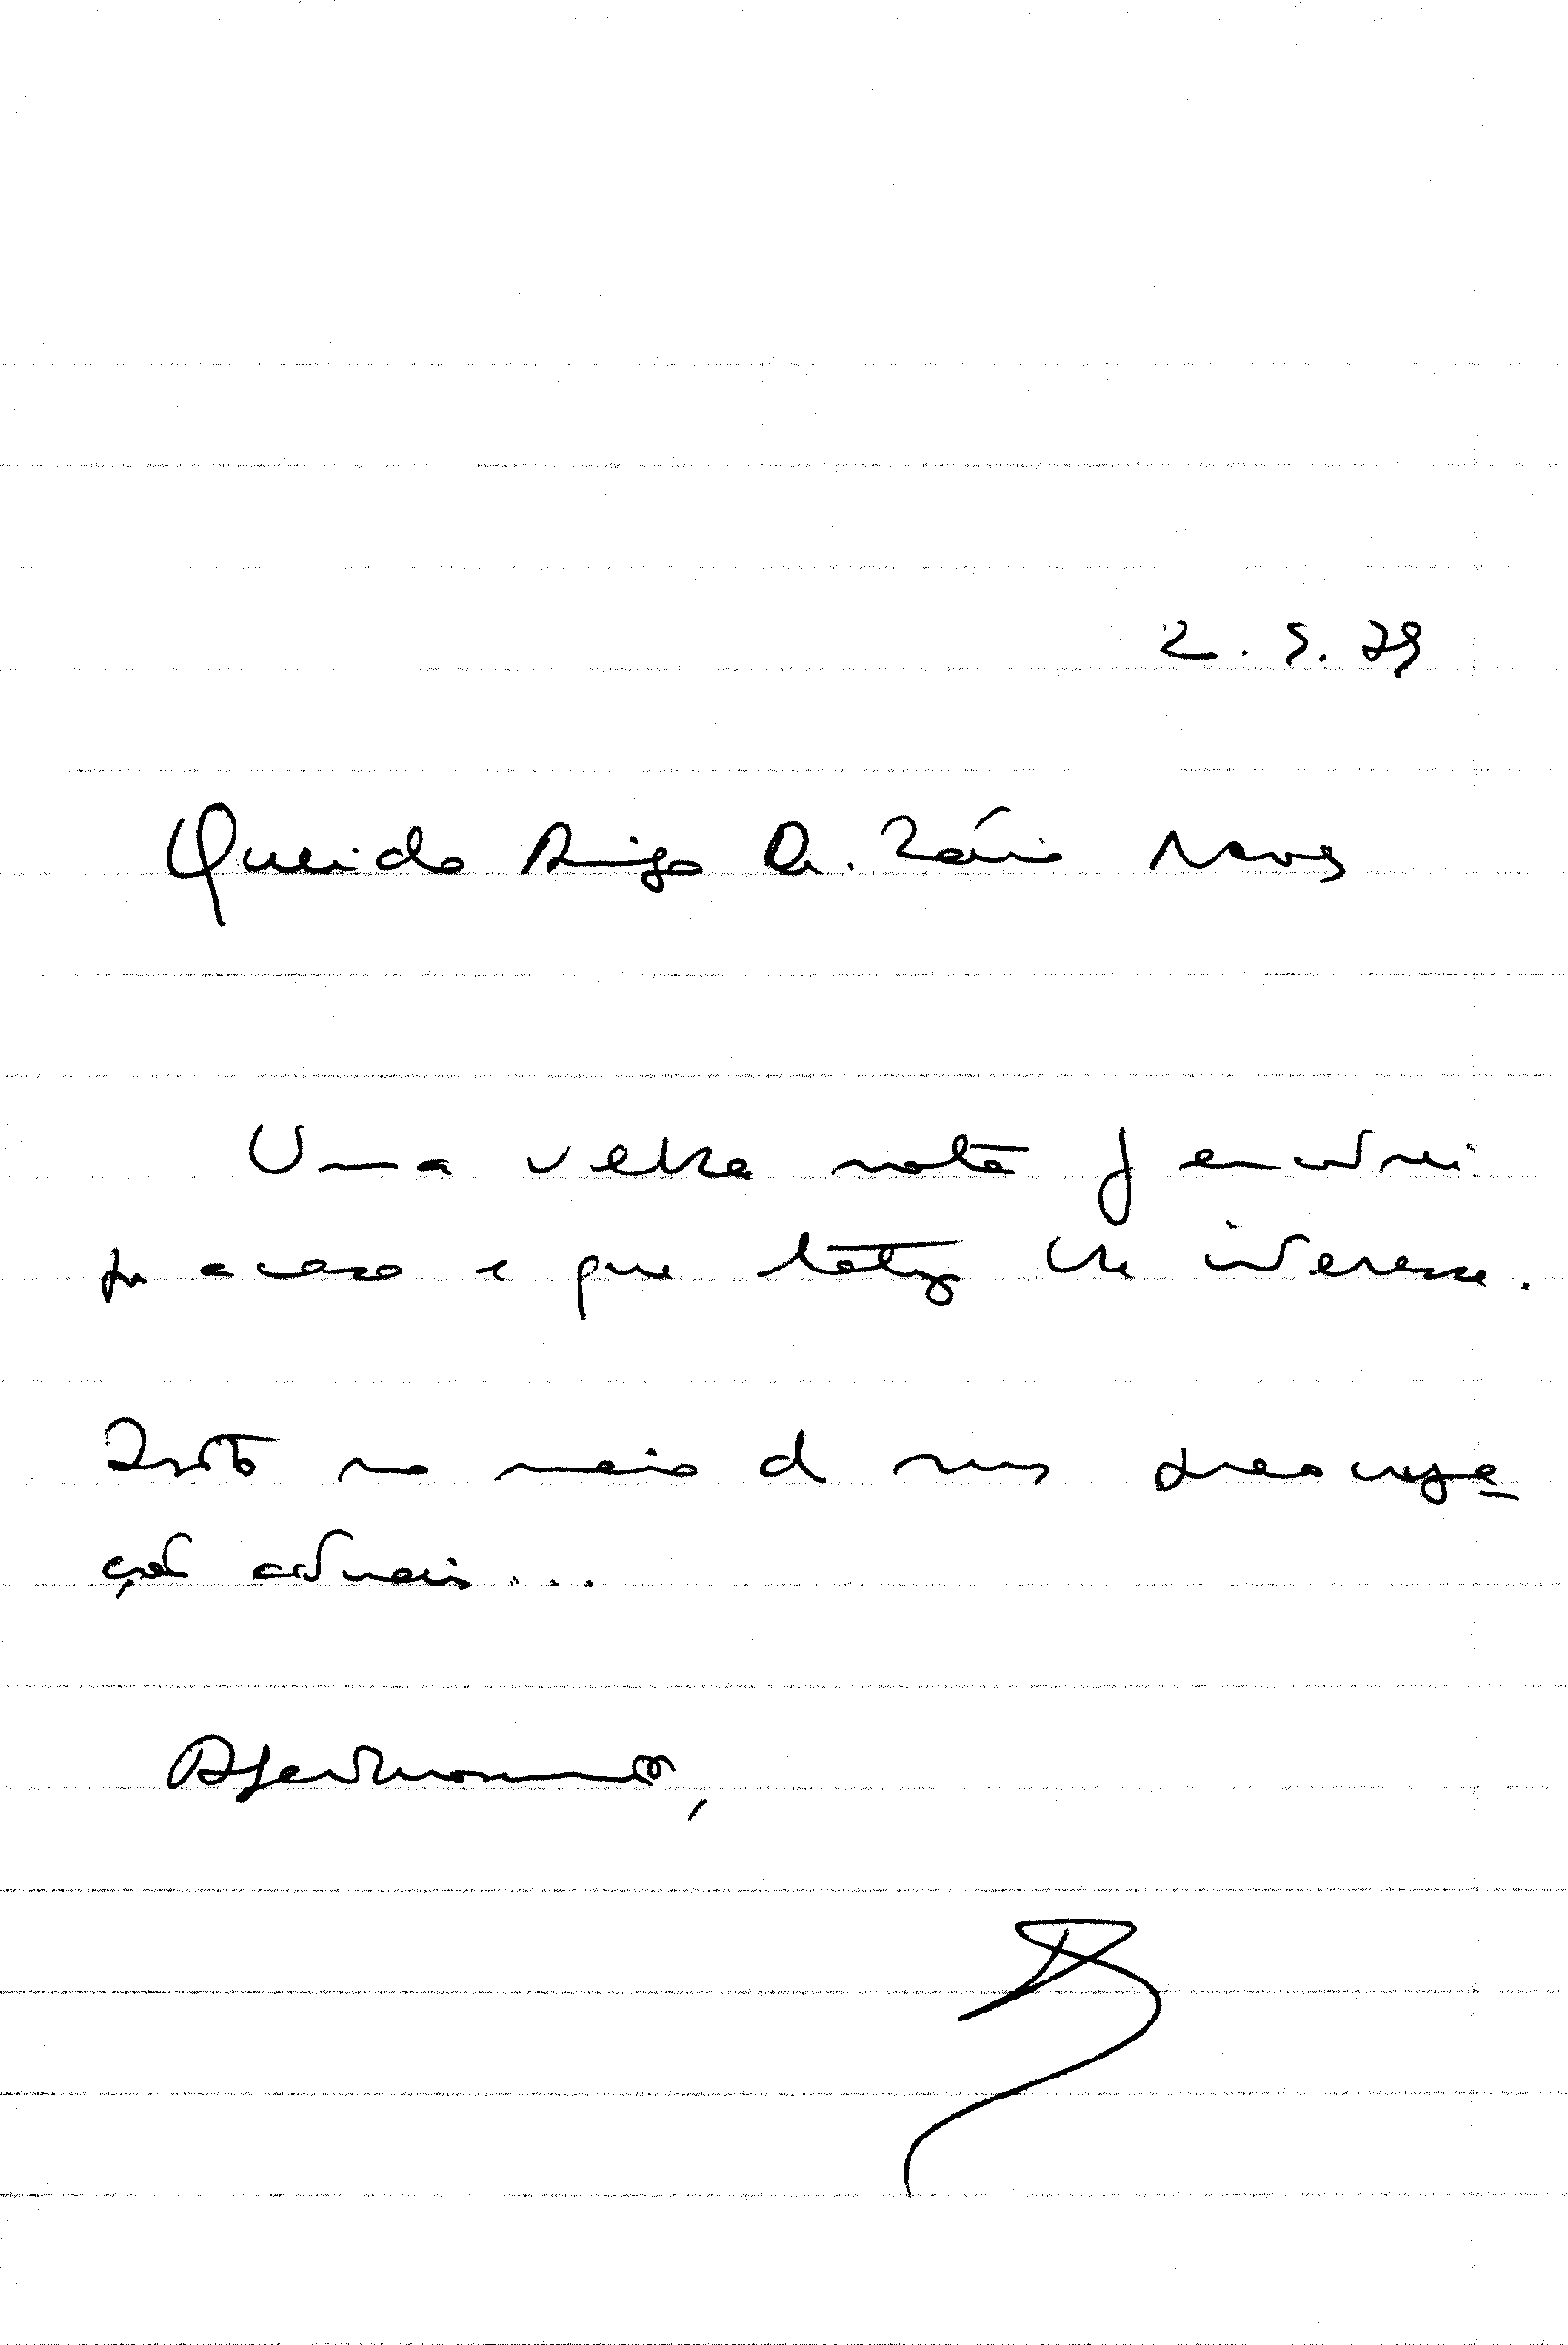 2.5.79
Querido Amigo Dr. Mário Neves
Uma velha nota q encontrei
por acaso e que talvez lhe interesse.
Isto no meio d suas preocupa
ções actuais...
Afectuosamente,